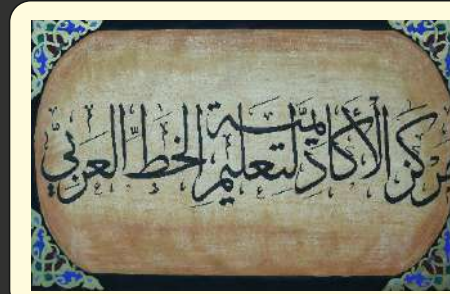 مركز الأكاديمية لتعليم الخط العربي